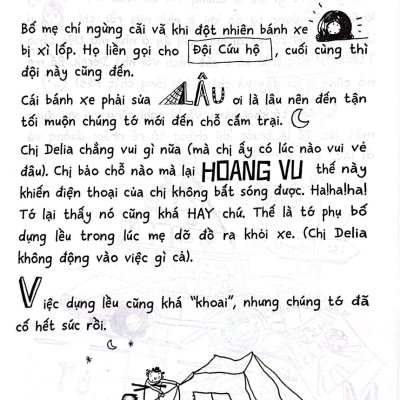 Bố mẹ chỉ ngừng cãi vã khi đột nhiên bánh xe
bị xì lốp. Họ liền gọi cho Đội Cứu hộ, cuối cùng thì
đội này cũng đến.
Cái bánh xe phải sửa LÂU ơi là lâu nên đến tận
tối muộn chúng tớ mới đến chỗ cắm trại.
Chị Delia chẳng vui gì nữa (mà chị ấy có lúc nào vui vẻ
đâu). Chị bảo chỗ nào mà lại HOANG VU thế này
khiến điện thoại của chị không bắt sóng được. Ha!ha!ha!
Tớ lại thấy nó cũng khá HAY chứ. Thế là tớ phụ bố
dựng lều trong lúc mẹ dỡ đồ ra khỏi xe. (Chị Delia
không động vào việc gì cả).
Việc dựng lều cũng khá "khoai", nhưng chúng tớ đã
cố hết sức rồi.